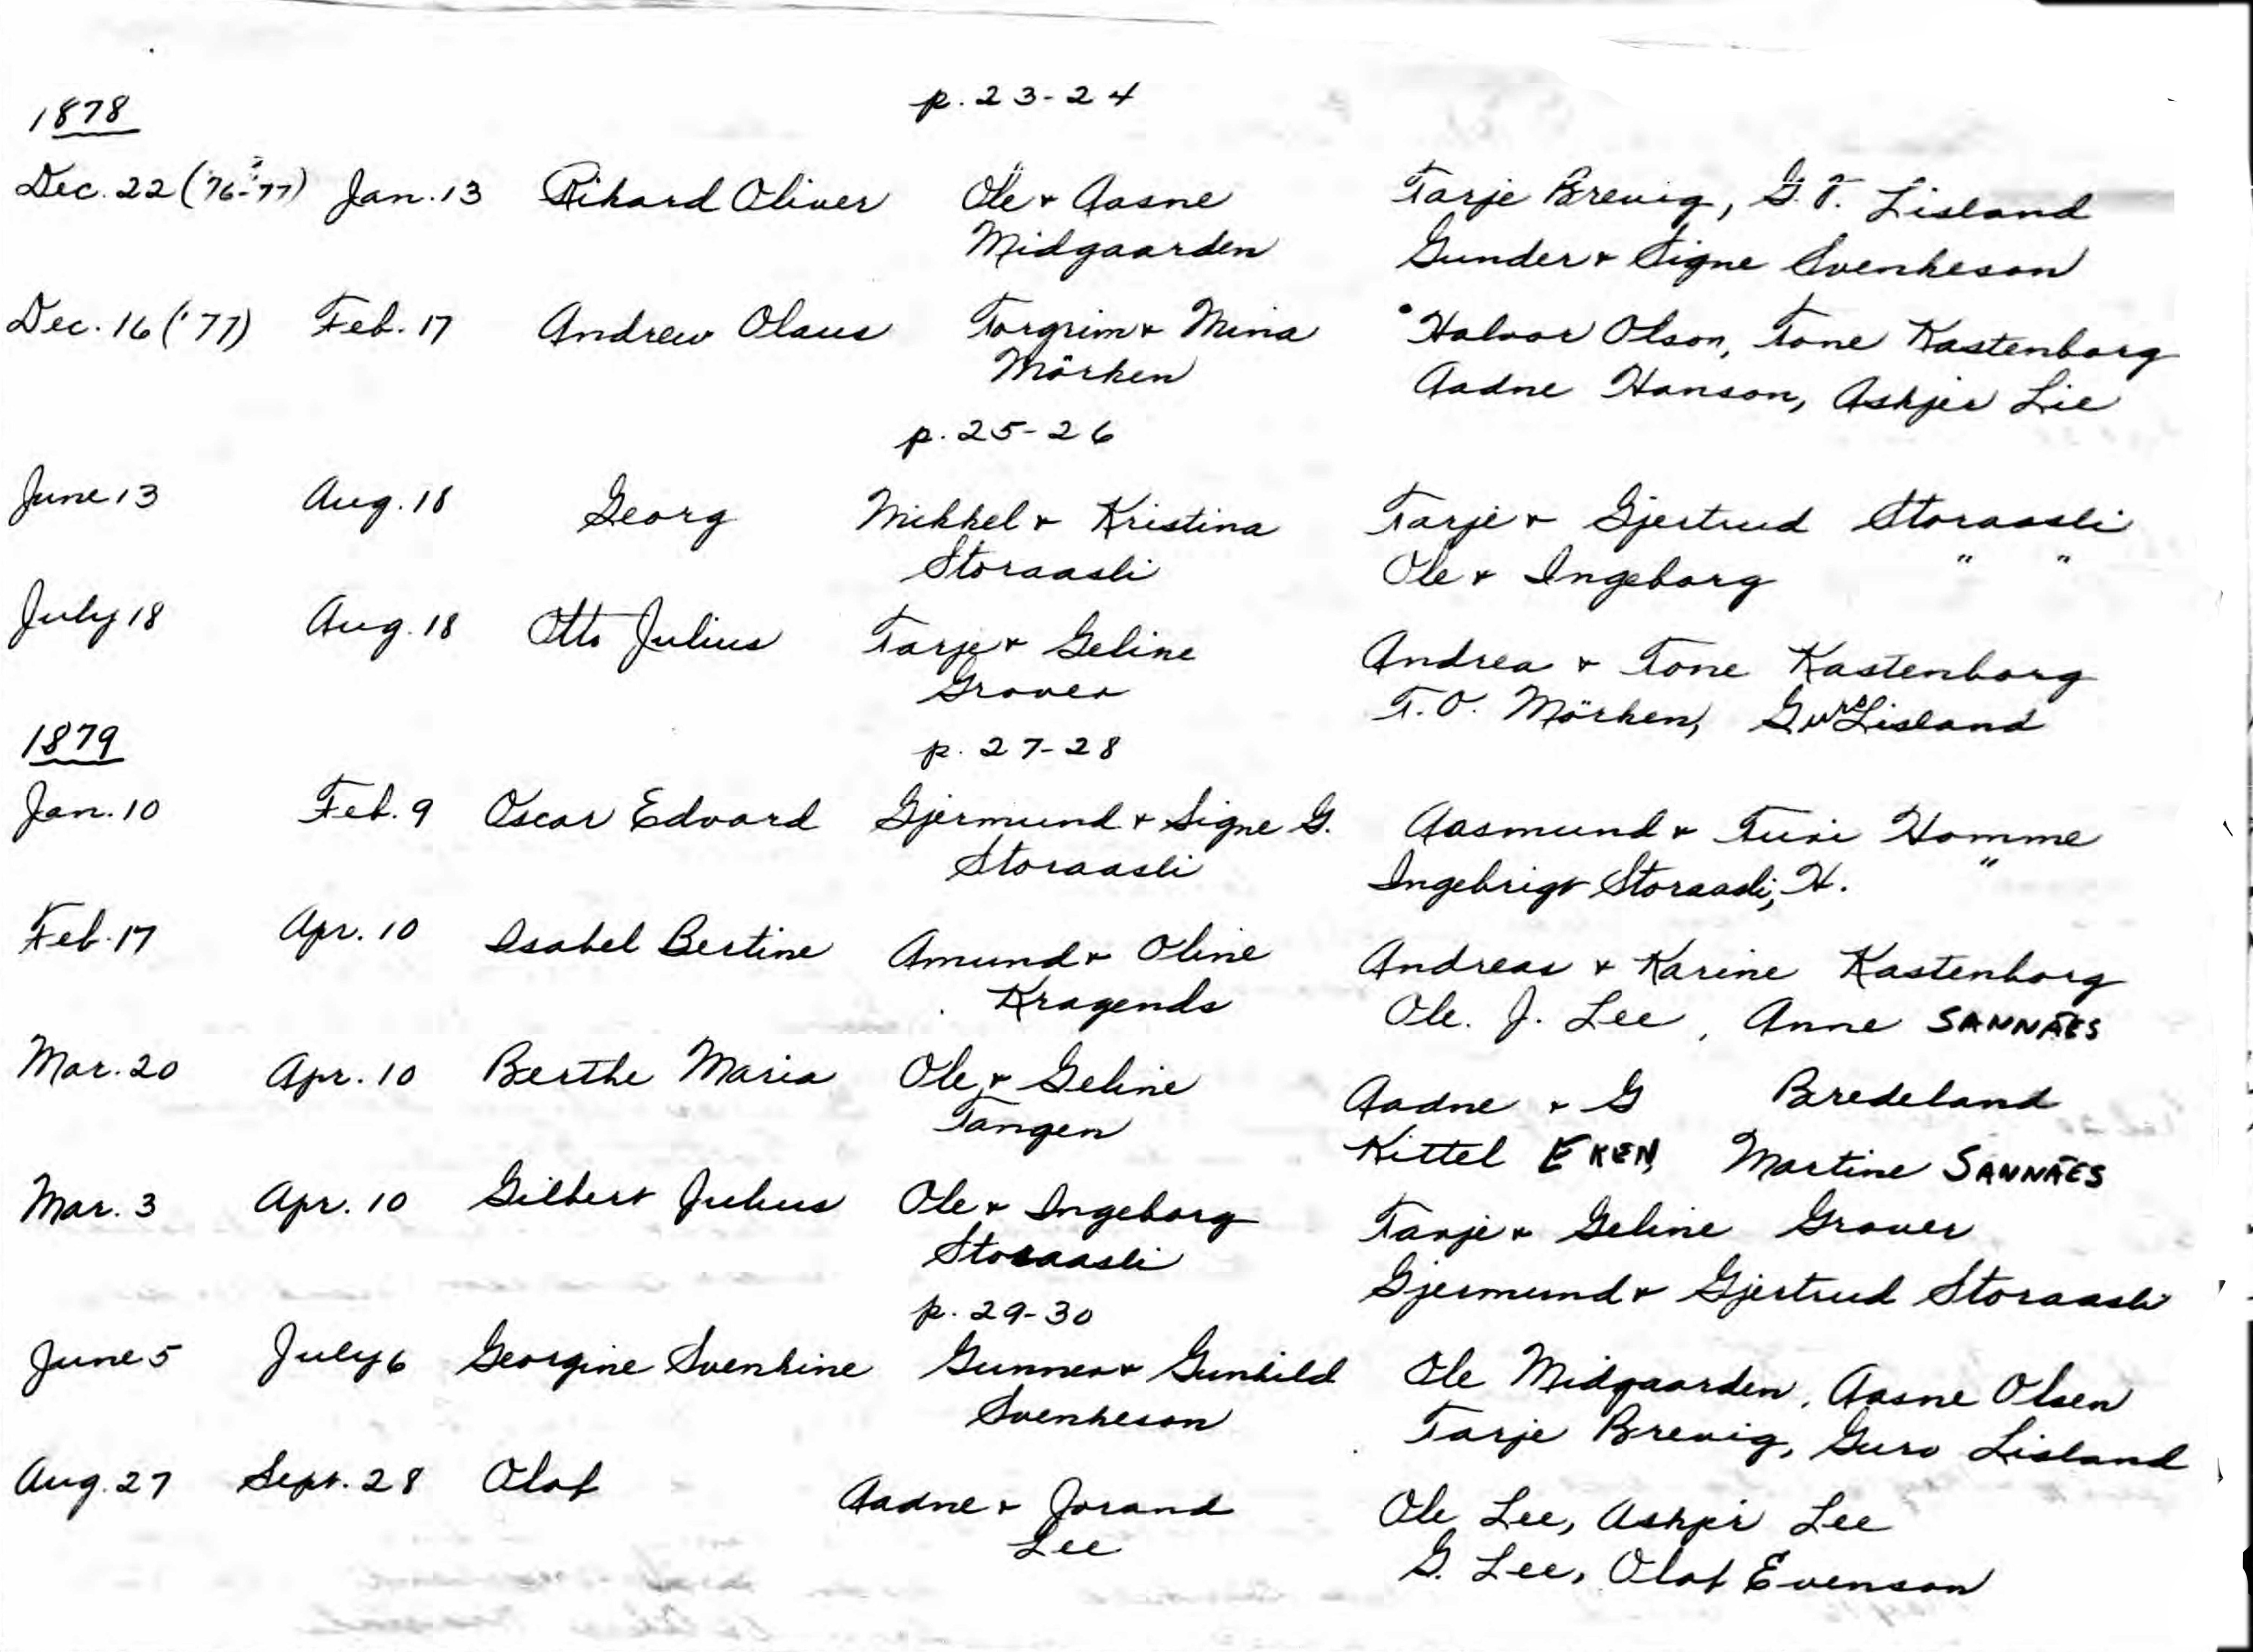 p. 23-24
1878
Dec. 22 ('76-'77) Jan. 13 Rikard Oliver Ole & Aasne Tarje Brevig, G. T. Lisland
Midgaarden Gunder & Signe Svenkeson
Dec. 16 ('77) Feb. 17 Andrew Olaus Torgrim & Mina Halvor Olson, Tone Kastenborg
Mörken Aadne Hanson, Askjer Lie
p. 25-26
June 13 Aug. 18 Georg Mikkel & Kristina Tarje & Gjertrud Storaasli
Storaasli Ole & Ingeborg " "
July 18 Aug. 18 Otto Julius Tarje & Geline Andrea & Tone Kastenborg
Grover T. O. Mörken, Guro Lisland
1879
p. 27-28
Jan. 10 Feb. 9 Oscar Edvard Gjermund & Signe G. Aasmund & Turi Homme
Storaasli Ingebrigt Storaasli, H. "
Feb. 17 Apr. 10 Isabel Bertine Amund & Oline Andreas & Karine Kastenborg
Kragends Ole. J. Lee, Anne SANNÄES
Mar. 20 Apr. 10 Berthe Maria Ole & Geline Aadne & G Bredeland
Tangen Kittel EKEN, Martine SANNÄES
Mar. 3 Apr. 10 Gilbert Julius Ole & Ingeborg Tarje & Geline Grover
Storaasli Gjermund & Gjertrud Storaasli
p. 29-30
June 5 July 6 Georgine Svenkine Gunner & Gunhild Ole Midgaarden, Aasne Olsen
Svenkeson Tarje Brevig, Guro Lisland
Aug. 27 Sept. 28 Olaf Aadne & Jorand Ole Lee, Askjer Lee
Lee G. Lee, Olaf Evenson